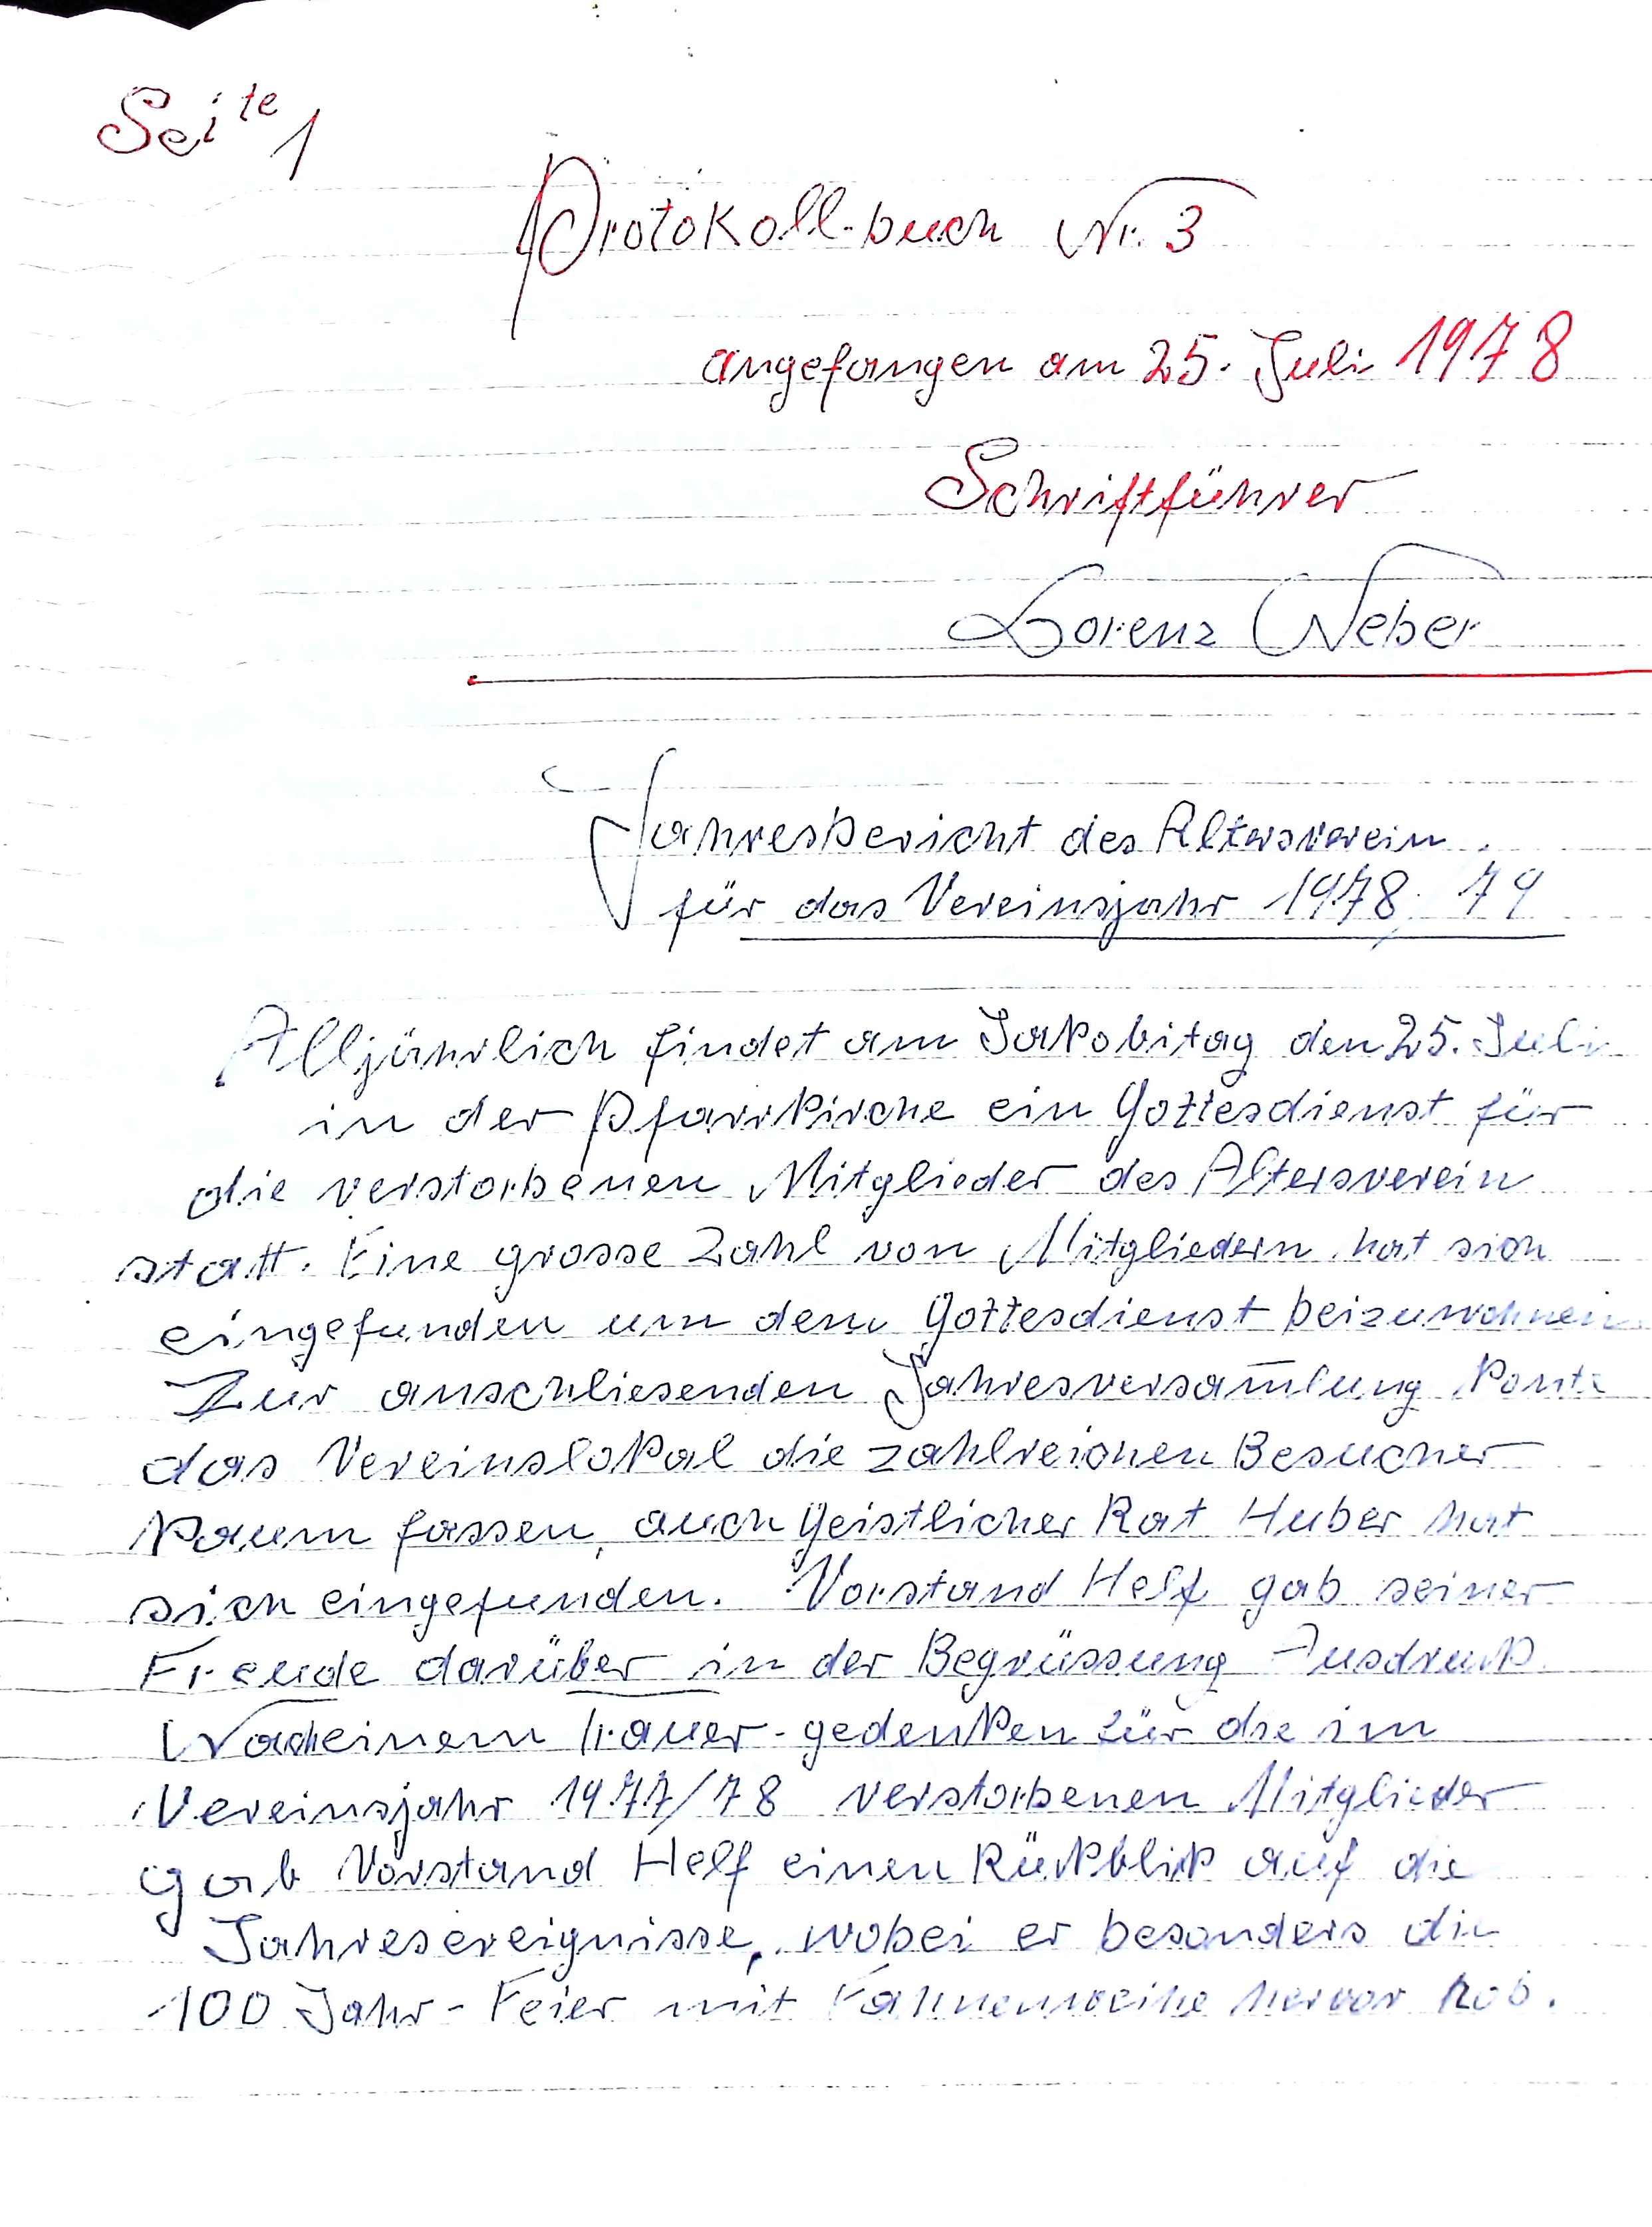 Seite 1
Protokoll-buch Nr. 3
angefangen am 25. Juli 1978
Schriftführer
Lorenz Weber
Jahresbericht des Altersverein
für das Vereinsjahr 1978/79
Alljährlich findet am Jakobitag den 25. Juli
in der Pfarrkirche ein Gottesdienst für
die verstorbenen Mitglieder des Altersverein
statt. Eine grosse Zahl von Mitgliedern hat sich
eingefunden um dem Gottesdienst beizuwohnen
Zur anschliesenden Jahresversam̅lung konte
das Vereinslokal die zahlreichen Besucher
kaum fassen, auch Geistlicher Rat Huber hat
sich eingefunden. Vorstand Helf gab seiner
Freude darüber in der Begrüssung Ausdruk.
Nach einem Trauer-gedenken für die im
Vereinsjahr 1977/78 verstorbenen Mitglieder
gab Vorstand Helf einen Rükblik auf die
Jahresereignisse, wobei er besonders die
100 Jahr-Feier mit Fahnenweihe hervor hob.